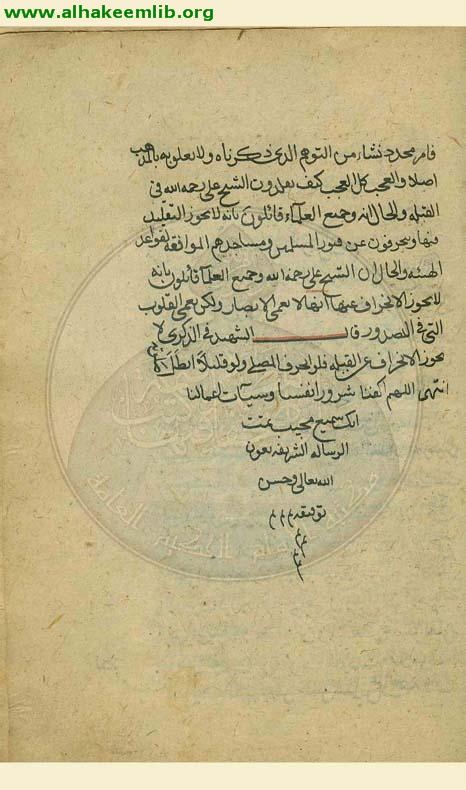 www.alhakeemlib.org
فامر محدد نشاء من التوهم الذى ذكرناه ولا تعلق به بالمذهب
اصلا والعجب كل العجب كيف يقلدون الشيخ على رحمه الله فى
القبله والحال انه وجميع العلماء قائلون بانه لا يجوز التقليد
فيها وينحرفون عن قبور المسلمين ومساجدهم الموافقة لقواعد
الهيئه والحال ان الشيخ على رحمه الله وجميع العلما قائلون بانه
لا يجوز الانحراف عنها انها لا تعمى الابصار ولكن تعمى القلوب
التى فى الصدور قال الشهيد فى الذكرى لا
يجوز الانحراف عن القبله فلو انحرف المصلى ولو قليلا بطلت
انتهى اللهم كفنا شرور انفسنا وسيئات اعمالنا
انك سميع مجيب تمت
الرساله الشريفه بعون
الله تعالى وحسن
توفيقه م م م